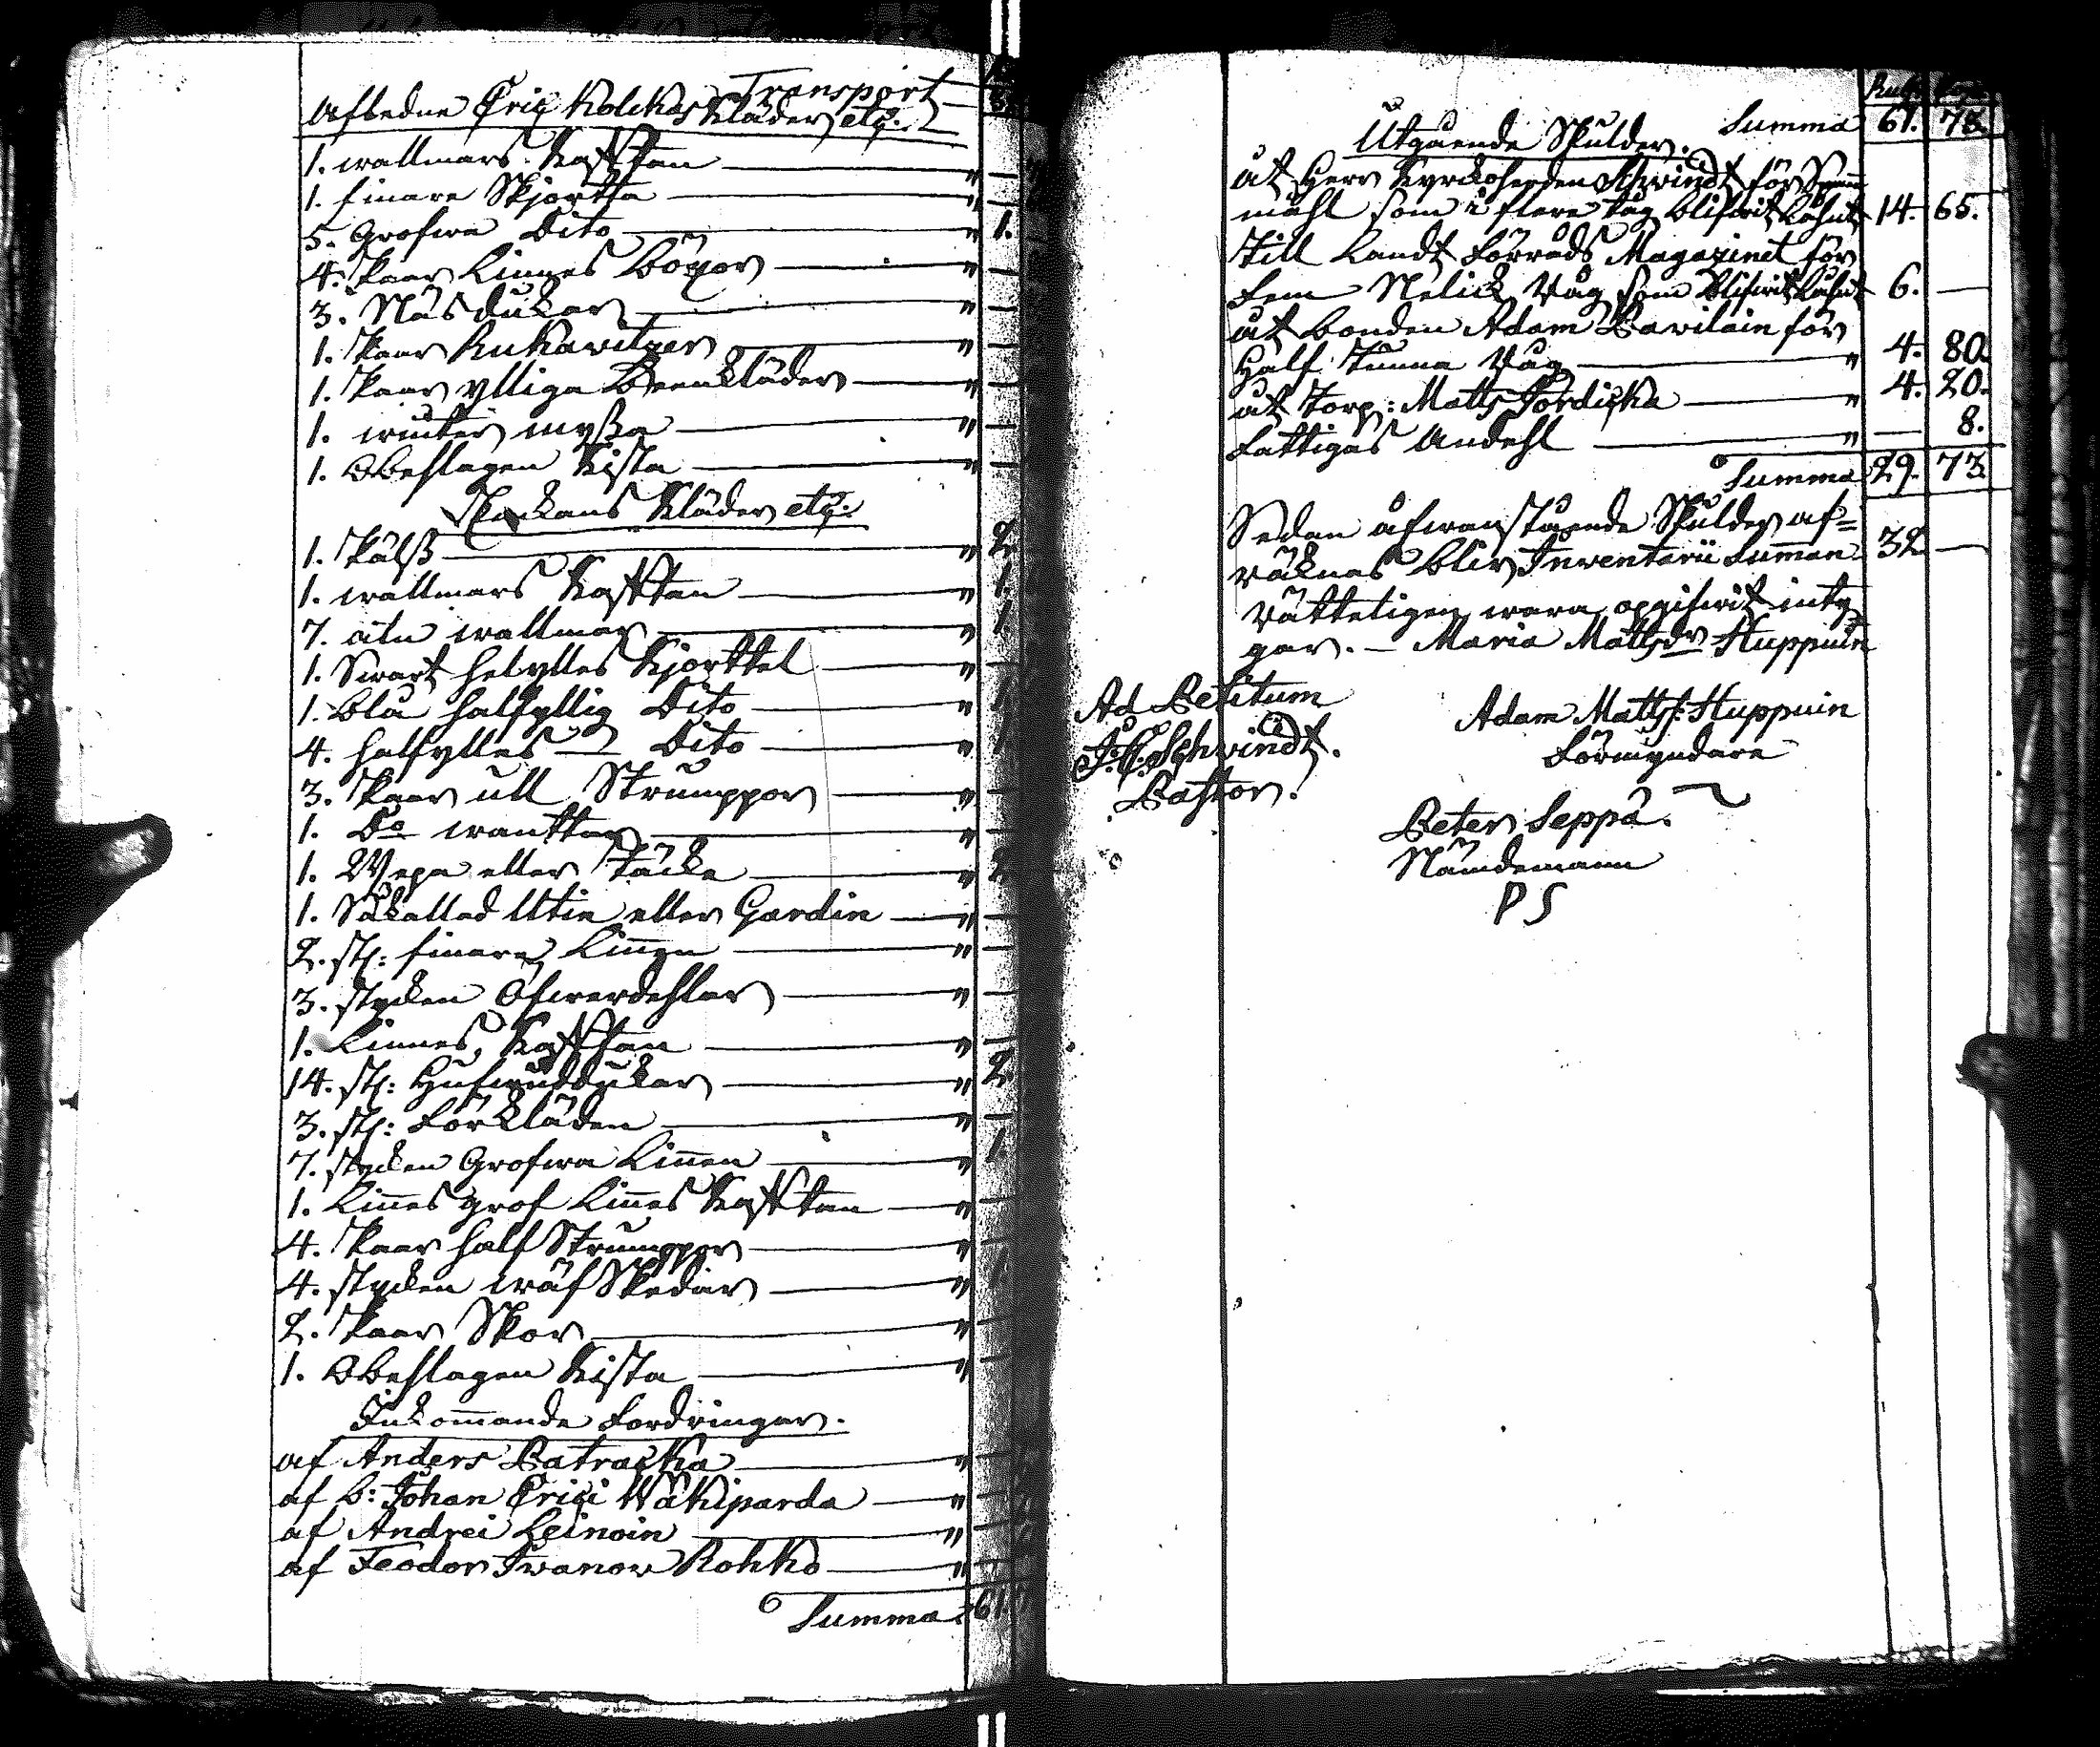 Transport
Afledne Eric Kolckas Kläder etc:
1. wallmars Kafttan — "
1. finare Skjortta — "
5. Grofwa Dito — " 1.
4. Paar Linnes Böxor — "
3. Näsdukar — "
1. Paar Rukawitzer — "
1. Paar ylliga Beenkläder — "
1. winter myßa — "
1. Obeslagen Kista — "
Enckans Kläder etc:
1. Pälß — " 2.
1. wallmars Kafttan — " 1.
7. aln wallmar — " 1.
1. Swart helylles Kjorttel — "
1. blå halfyllig Dito — "
4. halfylles — Dito — "
3. Paar ull Strumppor — "
1. Do wanttar — "
1. Wepa eller Täcke — " 2
1. Såkallad Utin eller Gardin — "
2. st: finare Linnen — "
3. stycken Öfwerdehlar — "
1. Linnes Kafttan — "
14. st: Hufwuddukar — " 2.
3. st: Förkläden — "
7. stycken Grofwa Linnen — " 1.
1. Linnes grof Linnes Kafttan — "
4. Paar half Strumppor — "
4. stycken wäf Skedar — " 1.
2. Paar Skor — "
1. Obeslagen Kista — "
Inkommande Fordringar.
af Anders Patracka — "
af b: Johan Erici Wäkiparda — "
af Andrei Leinoin — "
af Feodor Iwanow Rohko — "
Summa 61.
Rub: Kop:
Summa 61. 78.
Utgående Skulder.
åt Herr Kyrckoherden Schwindt för Spann-
måhl som i flere tag blifwit lahnt 14. 65.
till Landt Förråds Magazinet för
fem Nelick Råg som blifwit lahnt 6. —
åt bonden Adam Pavilain för
Half Tunna Råg — " 4. 80.
åt Torp: Matts Tordicka — " 4. 20.
Fattigas Andehl — " — 8.
Summa 29. 73.
Sedan åfwanstående Skulder af=
räknas blir Inventarii Summan 32 —
Rätteligen wara opgifwit inty-
gar. — Maria Mattsdr Huppuin
Ad Petitum
J. C. Schwindt.
Pastor.
Adam Mattss: Huppuin
Förmyndare
Peter Seppä.
Nämdemann
P S